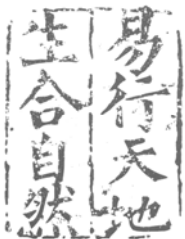 易行天地
生合自然